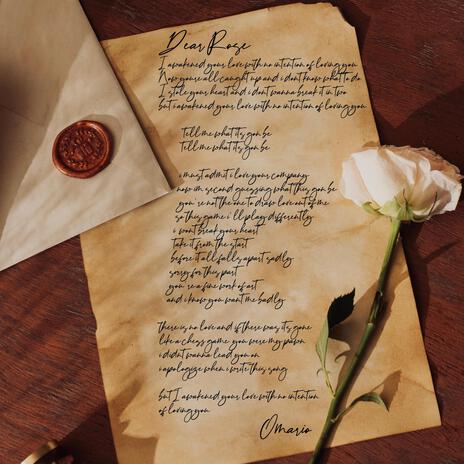 Dear Rose
I awakened your love with no intention of loving you
Now youre all caught up and i dont know what to do
I stole your heart and i dont wanna break it in two
but i awakened your love with no intention of loving you
Tell me what its gon be
Tell me what its gon be
i must admit i love your company
now im second guessing what this gon be
you're not the one to draw love out of me
so this game i'll play differently
i wont break your heart
Take it from the start
before it all falls apart sadly
sorry for this part
you're a fine work of art
and i know you want me badly
there is no love and if there was its gone
like a chess game you were my pawn
i didnt wanna lead you on
i apologize when i write this song
but I awakened your love with no intention
of loving you
Omario